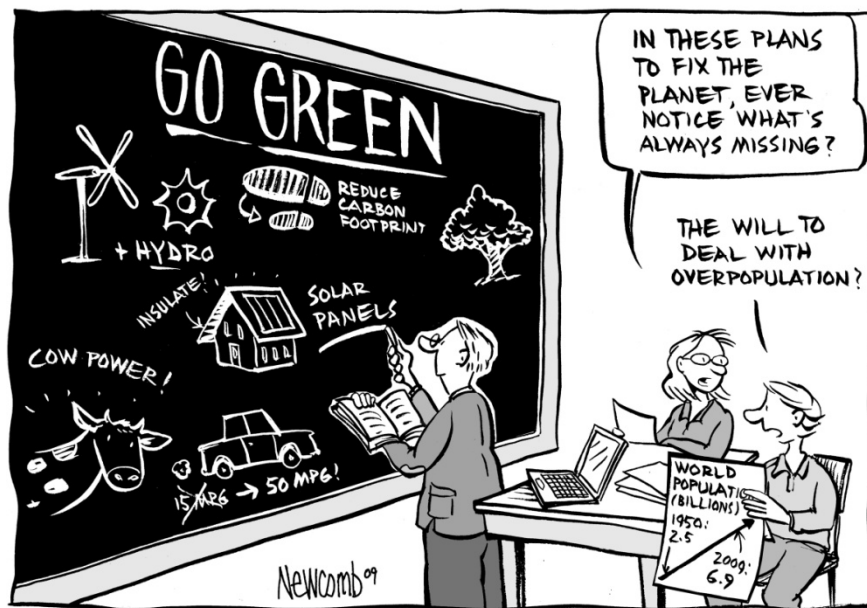 GO GREEN
+ HYDRO
REDUCE
CARBON
FOOTPRINT
INSULATE!
SOLAR
PANELS
COW POWER!
15 MPG → 50 MPG!
IN THESE PLANS
TO FIX THE
PLANET, EVER
NOTICE WHAT'S
ALWAYS MISSING?
THE WILL TO
DEAL WITH
OVERPOPULATION?
WORLD
POPULATIO
(BILLIONS)
1950:
2.5
2009:
6.9
Newcomb 09